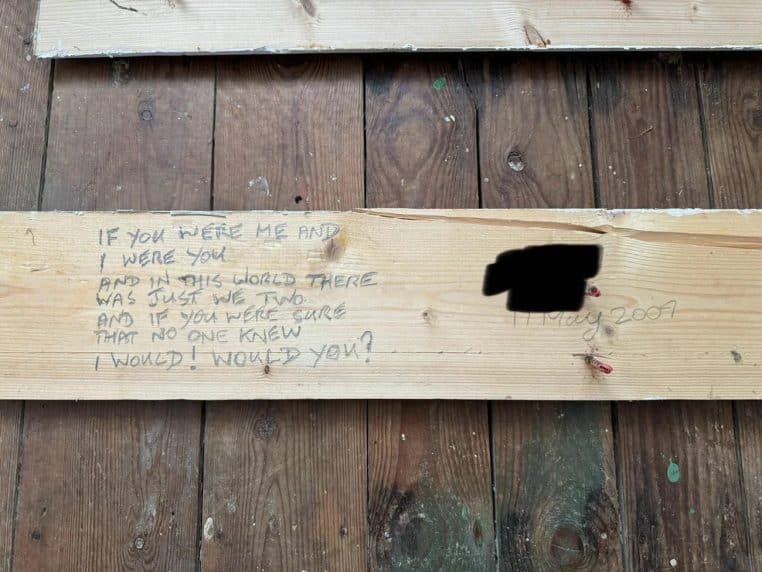 IF YOU WERE ME AND
I WERE YOU
AND IN THIS WORLD THERE
WAS JUST WE TWO
AND IF YOU WERE SURE
THAT NO ONE KNEW
I WOULD! WOULD YOU?
11 May 2007